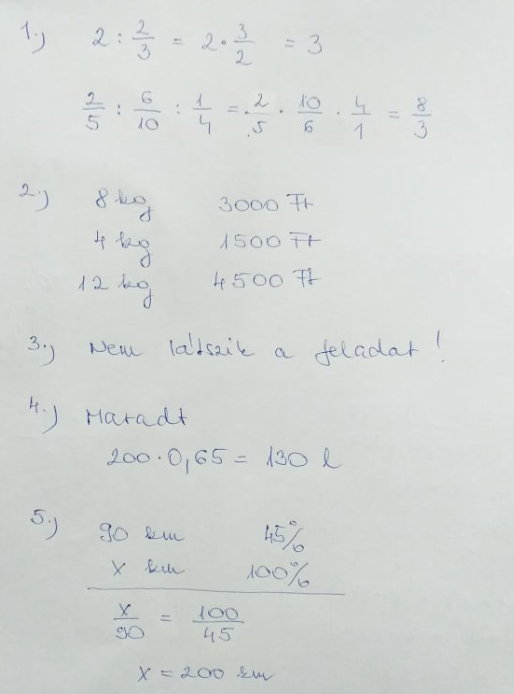 1.) 2 : 2/3 = 2 · 3/2 = 3
2/5 : 6/10 : 1/4 = 2/5 · 10/6 · 4/1 = 8/3
2.) 8 kg 3000 Ft
4 kg 1500 Ft
12 kg 4500 Ft
3.) Nem látszik a feladat!
4.) Maradt
200 · 0,65 = 130 l
5.) 90 km 45%
x km 100%
x/90 = 100/45
x = 200 km